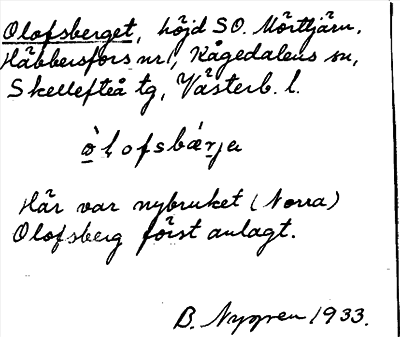 Olofsberget, höjd SO. Mörttjärn,
Häbbersfors nr 1, Kågedalens sn,
Skellefteå tg, Västerb. l.
ò̲lofsbár̲ja
Här var nybruket (Norra)
Olofsberg först anlagt.
B. Nygren 1933.